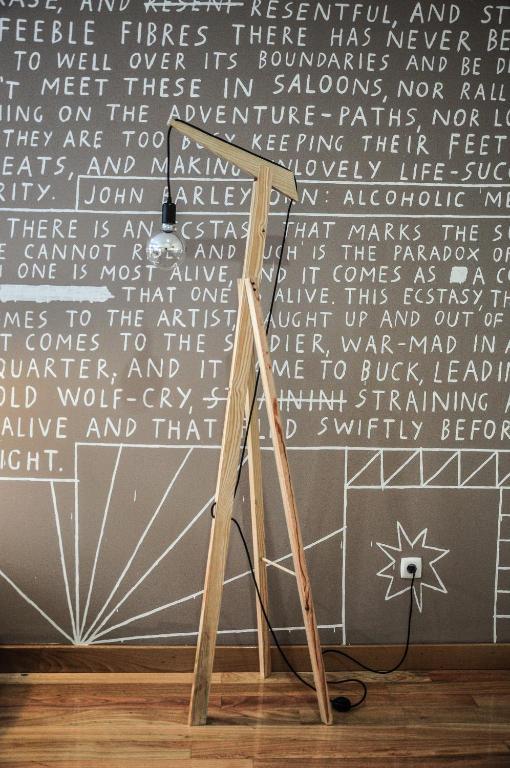 AND RESENT RESENTFUL, AND
FEEBLE FIBRES THERE HAS NEVER
TO WELL OVER ITS BOUNDARIES AND BE
MEET THESE IN SALOONS, NOR
ON THE ADVENTURE-PATHS, NOR
THEY ARE TOO BUSY KEEPING THEIR FEET
EATS, AND MAKING UNLOVELY LIFE-SUC
RITY. JOHN BARLEYCORN: ALCOHOLIC ME
THERE IS AN ECSTASY THAT MARKS THE
CANNOT RISE. AND SUCH IS THE PARADOX OF
ONE IS MOST ALIVE, AND IT COMES AS A
THAT ONE ALIVE. THIS ECSTASY, TH
MES TO THE ARTIST, CAUGHT UP AND OUT OF
T COMES TO THE SOLDIER, WAR-MAD IN A
QUARTER, AND IT CAME TO BUCK, LEADIN
OLD WOLF-CRY, STRAINING
ALIVE AND THAT FLED SWIFTLY BEFOR
IGHT.